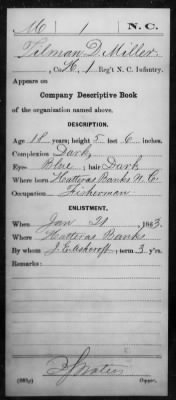 M | 1 | N. C.
Tilman D. Miller
Co. H, 1 Reg't N. C. Infantry.
Appears on
Company Descriptive Book
of the organization named above.
DESCRIPTION.
Age 18 years; height 5 feet 6 inches.
Complexion Dark
Eyes Blue; hair Dark
Where born Hatteras Banks N. C.
Occupation Fisherman
ENLISTMENT.
When Jan 21, 1863.
Where Hatteras Banks
By whom J. E. Ashcroft; term 3 y'rs.
Remarks:
(383g) Copyist.